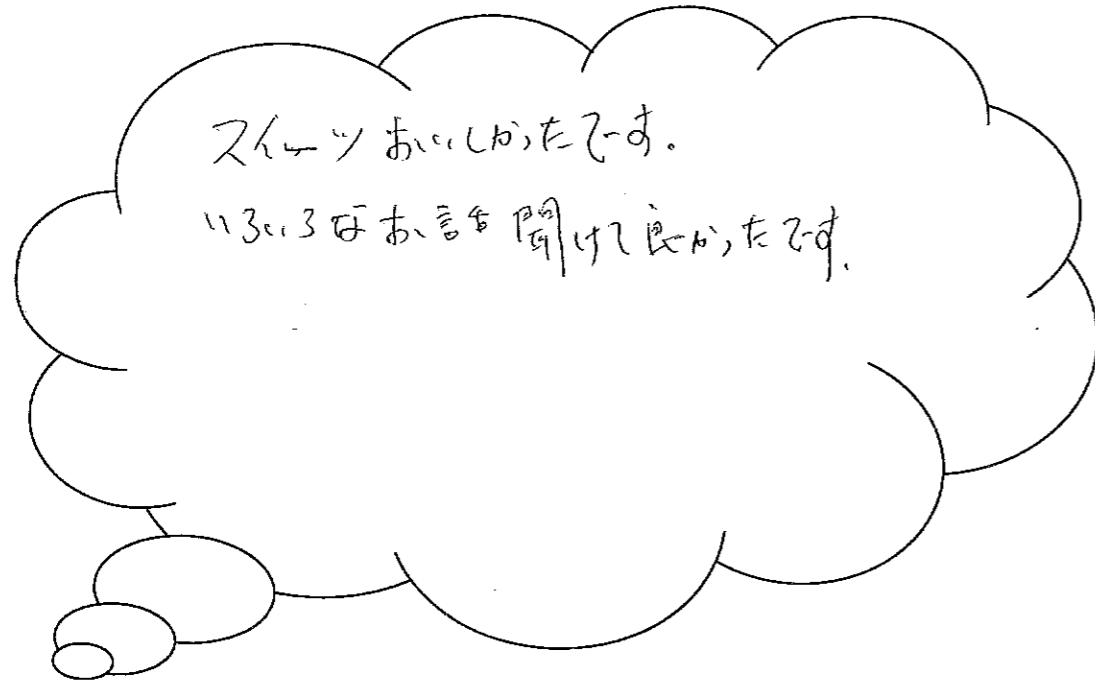 スイーツおいしかったです。
いろいろなお話聞けて良かったです。